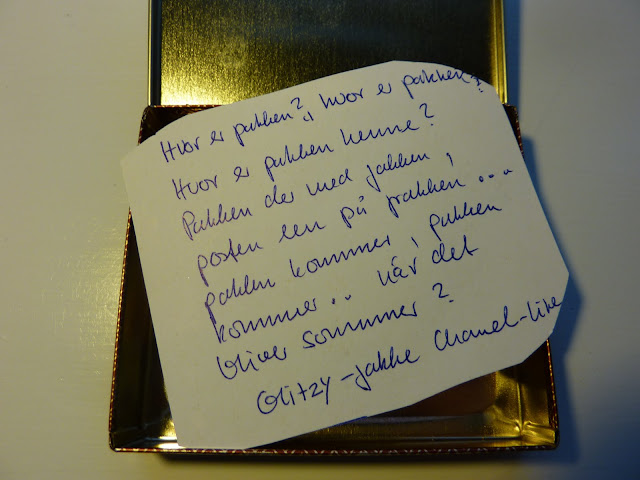 Hvor er pakken?, hvor er pakken?
Hvor er pakken henne?
Pakken der med jakken,
posten sen på frakken...
pakken kommer, pakken
kommer.. når det
bliver sommer?
Glitzy-jakke Chanel-like